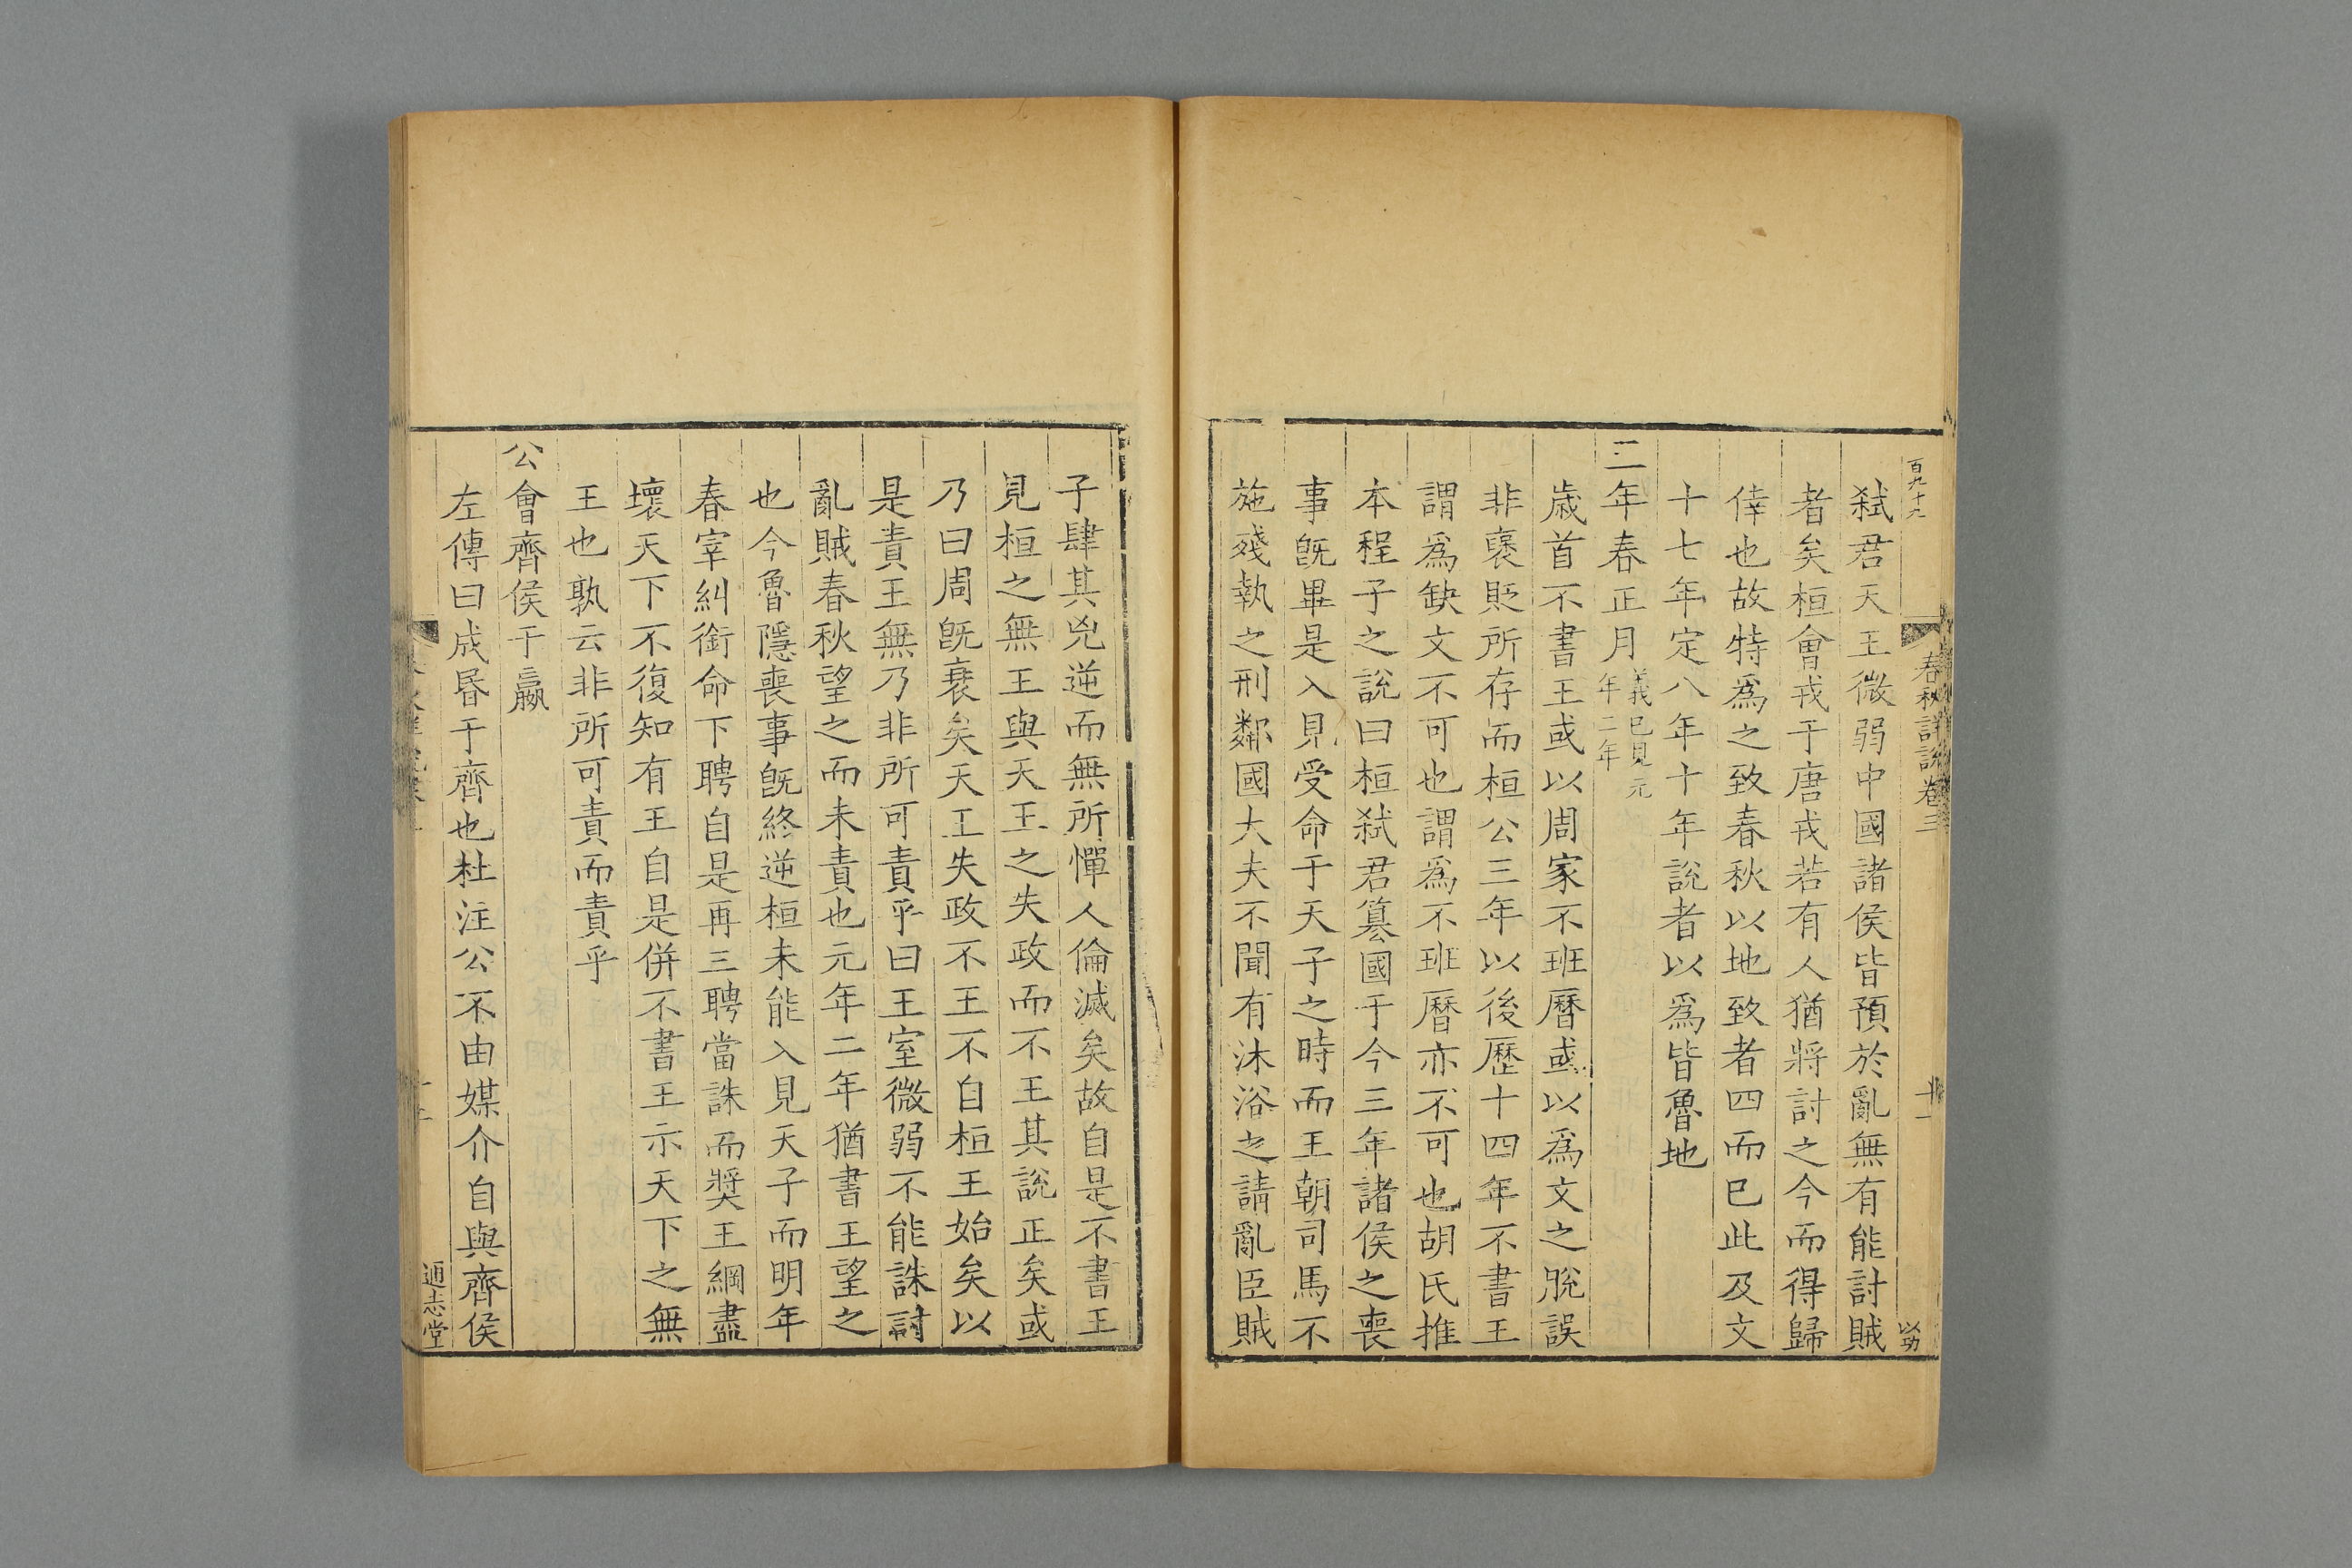 百九十九
春秋詳說卷三
十一
以功
弑君天王微弱中國諸侯皆預於亂無有能討賊
者矣桓會戎于唐戎若有人猶將討之今而得歸
倖也故特爲之致春秋以地致者四而已此及文
十七年定八年十年說者以爲皆魯地
三年春正月
義已見元
年二年
歳首不書王或以周家不班曆或以爲文之脫誤
非褒貶所存而桓公三年以後歷十四年不書王
謂爲缺文不可也謂爲不班曆亦不可也胡氏推
本程子之說曰桓弑君篡國于今三年諸侯之喪
事旣畢是入見受命于天子之時而王朝司馬不
施殘執之刑鄰國大夫不聞有沐浴之請亂臣賊
子肆其兇逆而無所憚人倫滅矣故自是不書王
見桓之無王與天王之失政而不王其說正矣或
乃曰周旣衰矣天王失政不王不自桓王始矣以
是責王無乃非所可責乎曰王室微弱不能誅討
亂賊春秋望之而未責也元年二年猶書王望之
也今魯隱喪事旣終逆桓未能入見天子而明年
春宰糾銜命下聘自是再三聘當誅而獎王綱盡
壞天下不復知有王自是併不書王示天下之無
王也孰云非所可責而責乎
公會齊侯于嬴
左傳曰成昬于齊也杜注公不由媒介自與齊侯
通志堂